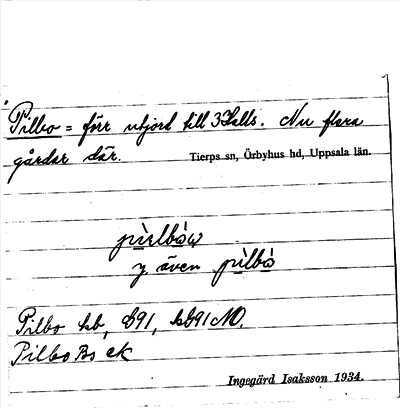 Pilbo = förr utjord till 3 Halls. Nu flera
gårdar där. Tierps sn, Örbyhus hd, Uppsala län.
pìelbòw
y även pìlbò
Pilbo hb, G91,
Pilbo Bs ek
Ingegärd Isaksson 1934.